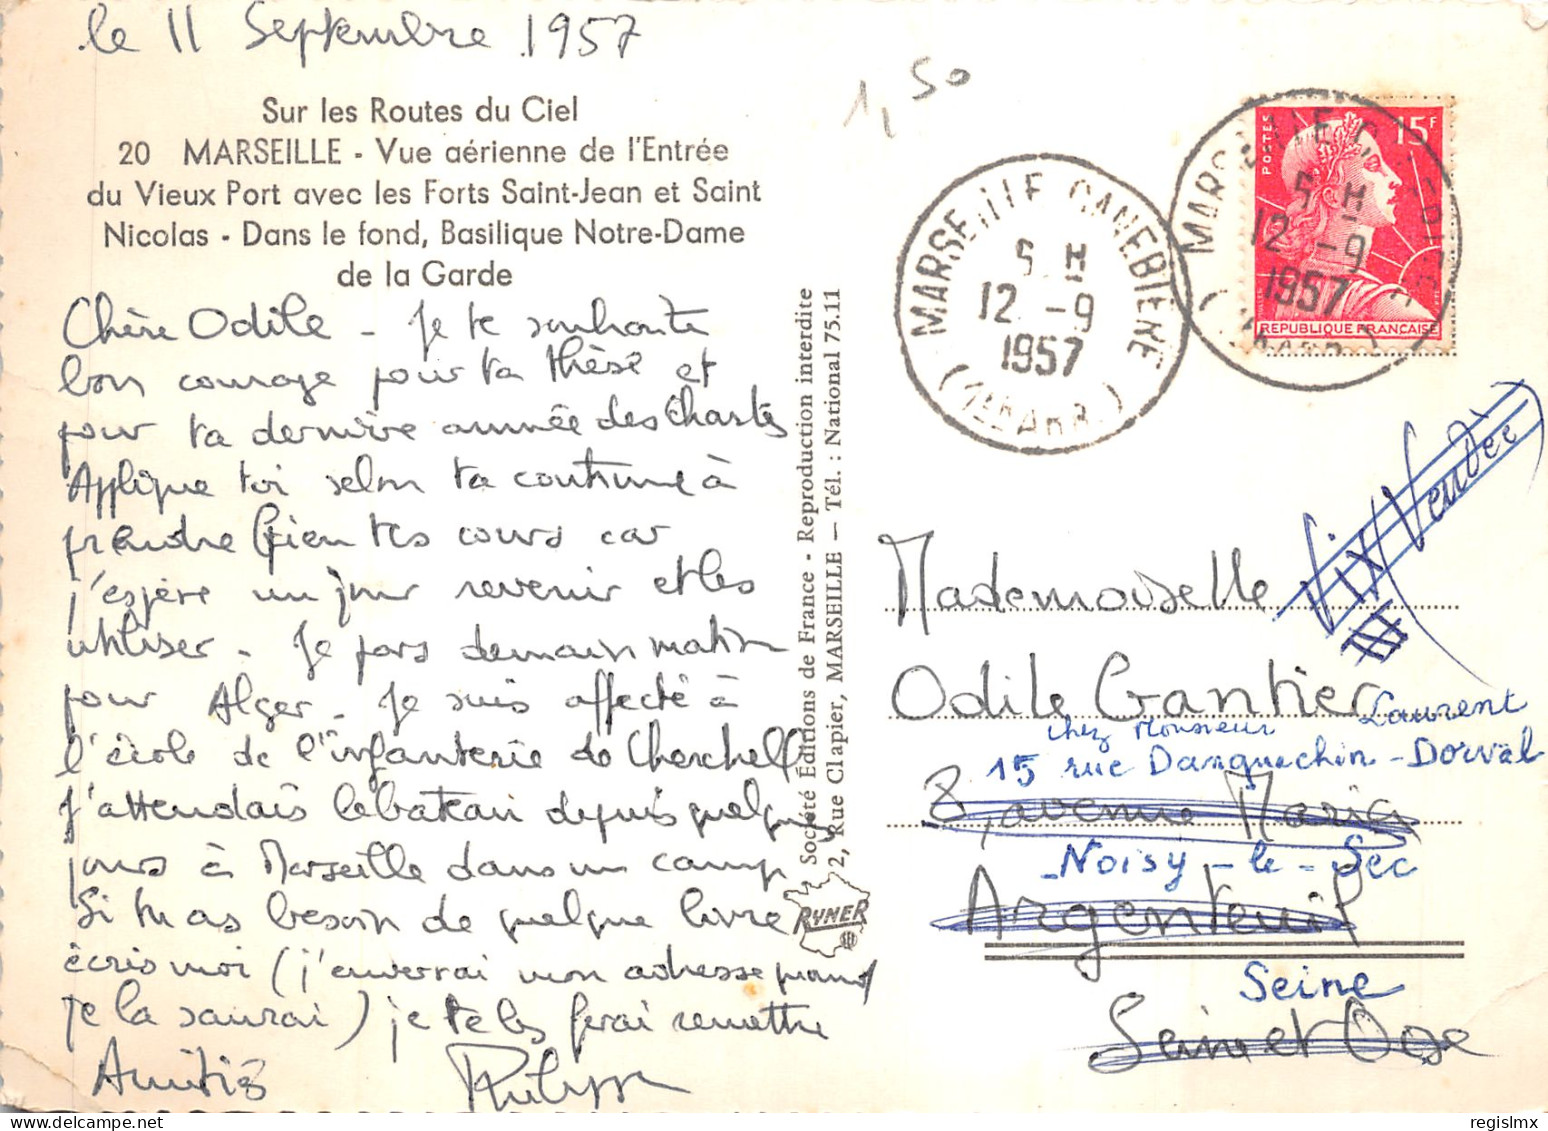 le 11 Septembre 1957
Sur les Routes du Ciel
20 MARSEILLE - Vue aérienne de l'Entrée
du Vieux Port avec les Forts Saint-Jean et Saint
Nicolas - Dans le fond, Basilique Notre-Dame
de la Garde
Chère Odile - Je te souhaite
bon courage pour ta thèse et
pour ta dernière année des Chartes
Applique toi selon ta coutume à
prendre bien tes cours car
j'espère un jour revenir et les
utiliser - Je pars demain matin
pour Alger - Je suis affecté à
l'école de l'infanterie de Cherchell
J'attendais le bateau depuis quelques
jours à Marseille dans un camp
Si tu as besoin de quelque livre
écris moi (j'enverrai mon adresse quand
je la saurai) je te les ferai remettre
Amitiés
Philippe
Société Éditions de France - Reproduction interdite
2, Rue Clapier, MARSEILLE — Tél. : National 75.11
RYNER
1,50
MARSEILLE CANEBIERE
5 H
12 -9
1957
(1er ARR.)
MARSEILLE CANEBIERE
5 H
12 -9
1957
POSTES
15F
REPUBLIQUE FRANCAISE
Vix Vendée
Mademoiselle
Odile Gantier
chez Monsieur Laurent
15 rue Danquechin - Dorval
8, avenue Maria
Noisy - le - Sec
Argenteuil
Seine
Seine et Oise
regislmx